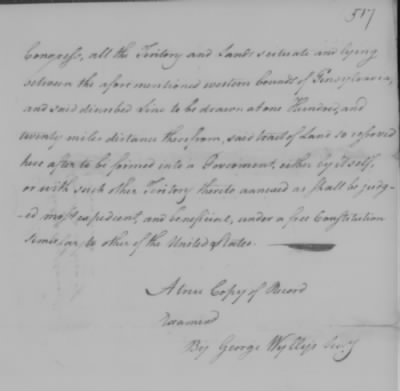 517
Congress, all the Teritory and Lands scituate and lying
between the afore mentioned western bounds of Pensylvania,
and said discribed Line to be drawn at one Hundred, and
twenty miles distance therefrom, said tract of Land so reserved
here after to be formed into a Goverment, either by itself,
or with such other Teritory thereto annexed as shall be judg-
-ed most expedient, and beneficial, under a free Constitution
similar to other of the United States.
A true Copy of Record
Examind
By George Wyllys Secy